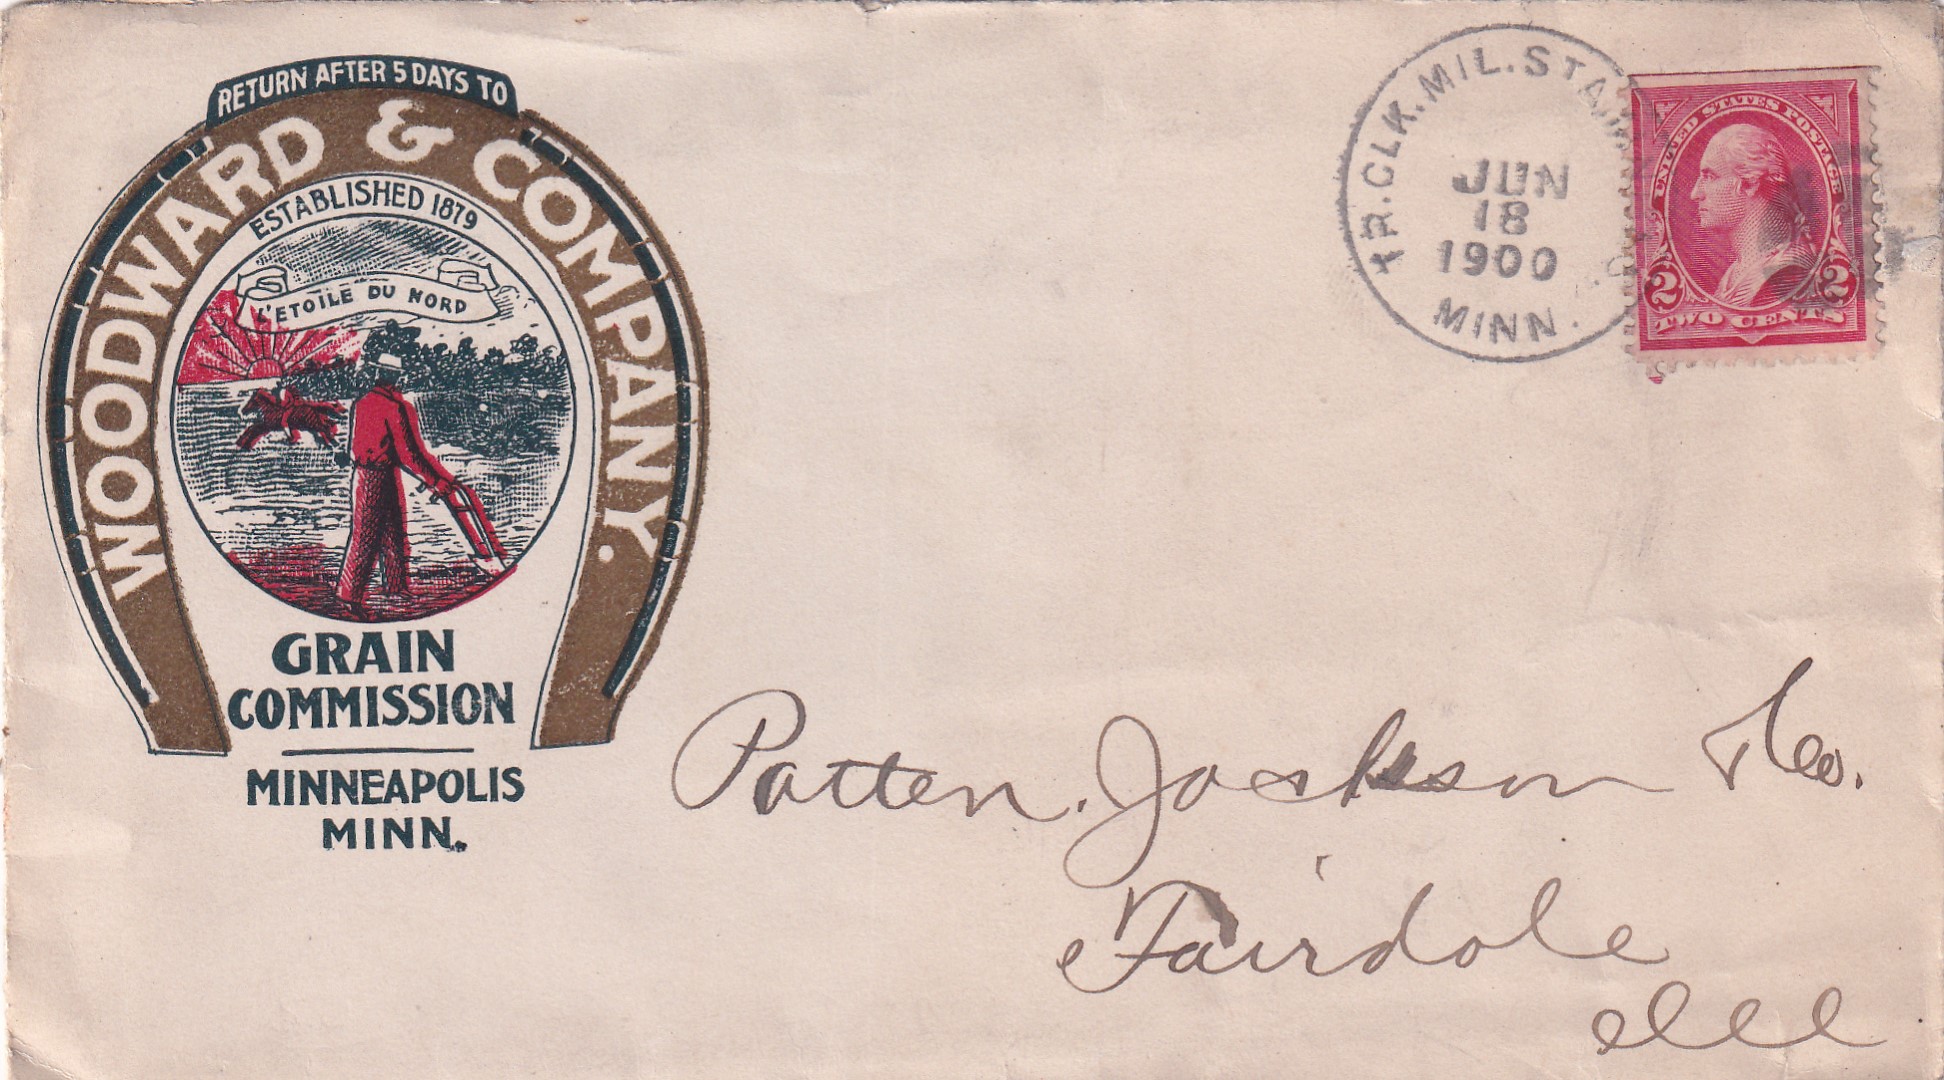 RETURN AFTER 5 DAYS TO
WOODWARD & COMPANY.
ESTABLISHED 1879
L'ETOILE DU NORD
GRAIN
COMMISSION
MINNEAPOLIS
MINN.
TR.CLK.MIL.STA.
JUN
18
1900
MINN.
UNITED STATES POSTAGE
2 2
TWO CENTS
Patten, Jackson & Co.
Fairdale
Ill